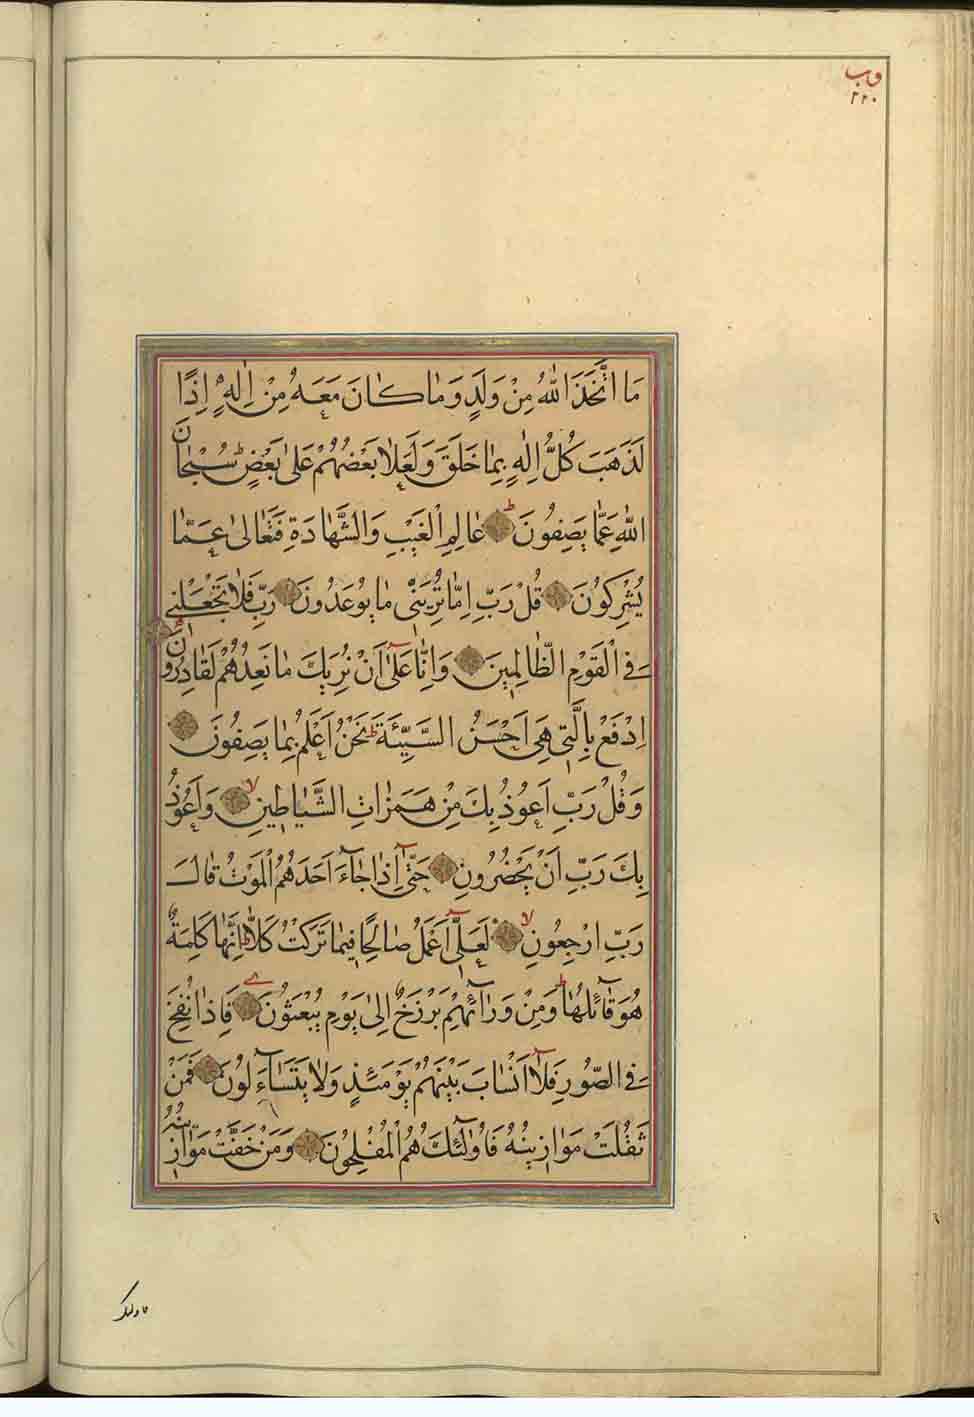 ٢٢٠
مَا اتَّخَذَ اللّٰهُ مِنْ وَلَدٍ وَمَا كَانَ مَعَهُ مِنْ اِلٰهٍ اِذًا
لَذَهَبَ كُلُّ اِلٰهٍ بِمَا خَلَقَ وَلَعَلَا بَعْضُهُمْ عَلٰى بَعْضٍ سُبْحَانَ
اللّٰهِ عَمَّا يَصِفُونَ عَالِمِ الْغَيْبِ وَالشَّهَادَةِ فَتَعَالٰى عَمَّا
يُشْرِكُونَ قُلْ رَبِّ اِمَّا تُرِيَنِّى مَا يُوعَدُونَ رَبِّ فَلَا تَجْعَلْنِى
فِى الْقَوْمِ الظَّالِمِينَ وَاِنَّا عَلٰٓى اَنْ نُرِيَكَ مَا نَعِدُهُمْ لَقَادِرُونَ
اِدْفَعْ بِالَّتِى هِىَ اَحْسَنُ السَّيِّئَةَ نَحْنُ اَعْلَمُ بِمَا يَصِفُونَ
وَقُلْ رَبِّ اَعُوذُ بِكَ مِنْ هَمَزَاتِ الشَّيَاطِينِ وَاَعُوذُ
بِكَ رَبِّ اَنْ يَحْضُرُونِ حَتّٰٓى اِذَا جَآءَ اَحَدَهُمُ الْمَوْتُ قَالَ
رَبِّ ارْجِعُونِ لَعَلّٰٓى اَعْمَلُ صَالِحًا فِيمَا تَرَكْتُ كَلَّا اِنَّهَا كَلِمَةٌ
هُوَ قَآئِلُهَا وَمِنْ وَرَآئِهِمْ بَرْزَخٌ اِلٰى يَوْمِ يُبْعَثُونَ فَاِذَا نُفِخَ
فِى الصُّورِ فَلَآ اَنْسَابَ بَيْنَهُمْ يَوْمَئِذٍ وَلَا يَتَسَآءَلُونَ فَمَنْ
ثَقُلَتْ مَوَازِينُهُ فَاُولٰٓئِكَ هُمُ الْمُفْلِحُونَ وَمَنْ خَفَّتْ مَوَازِينُهُ
فاولئك